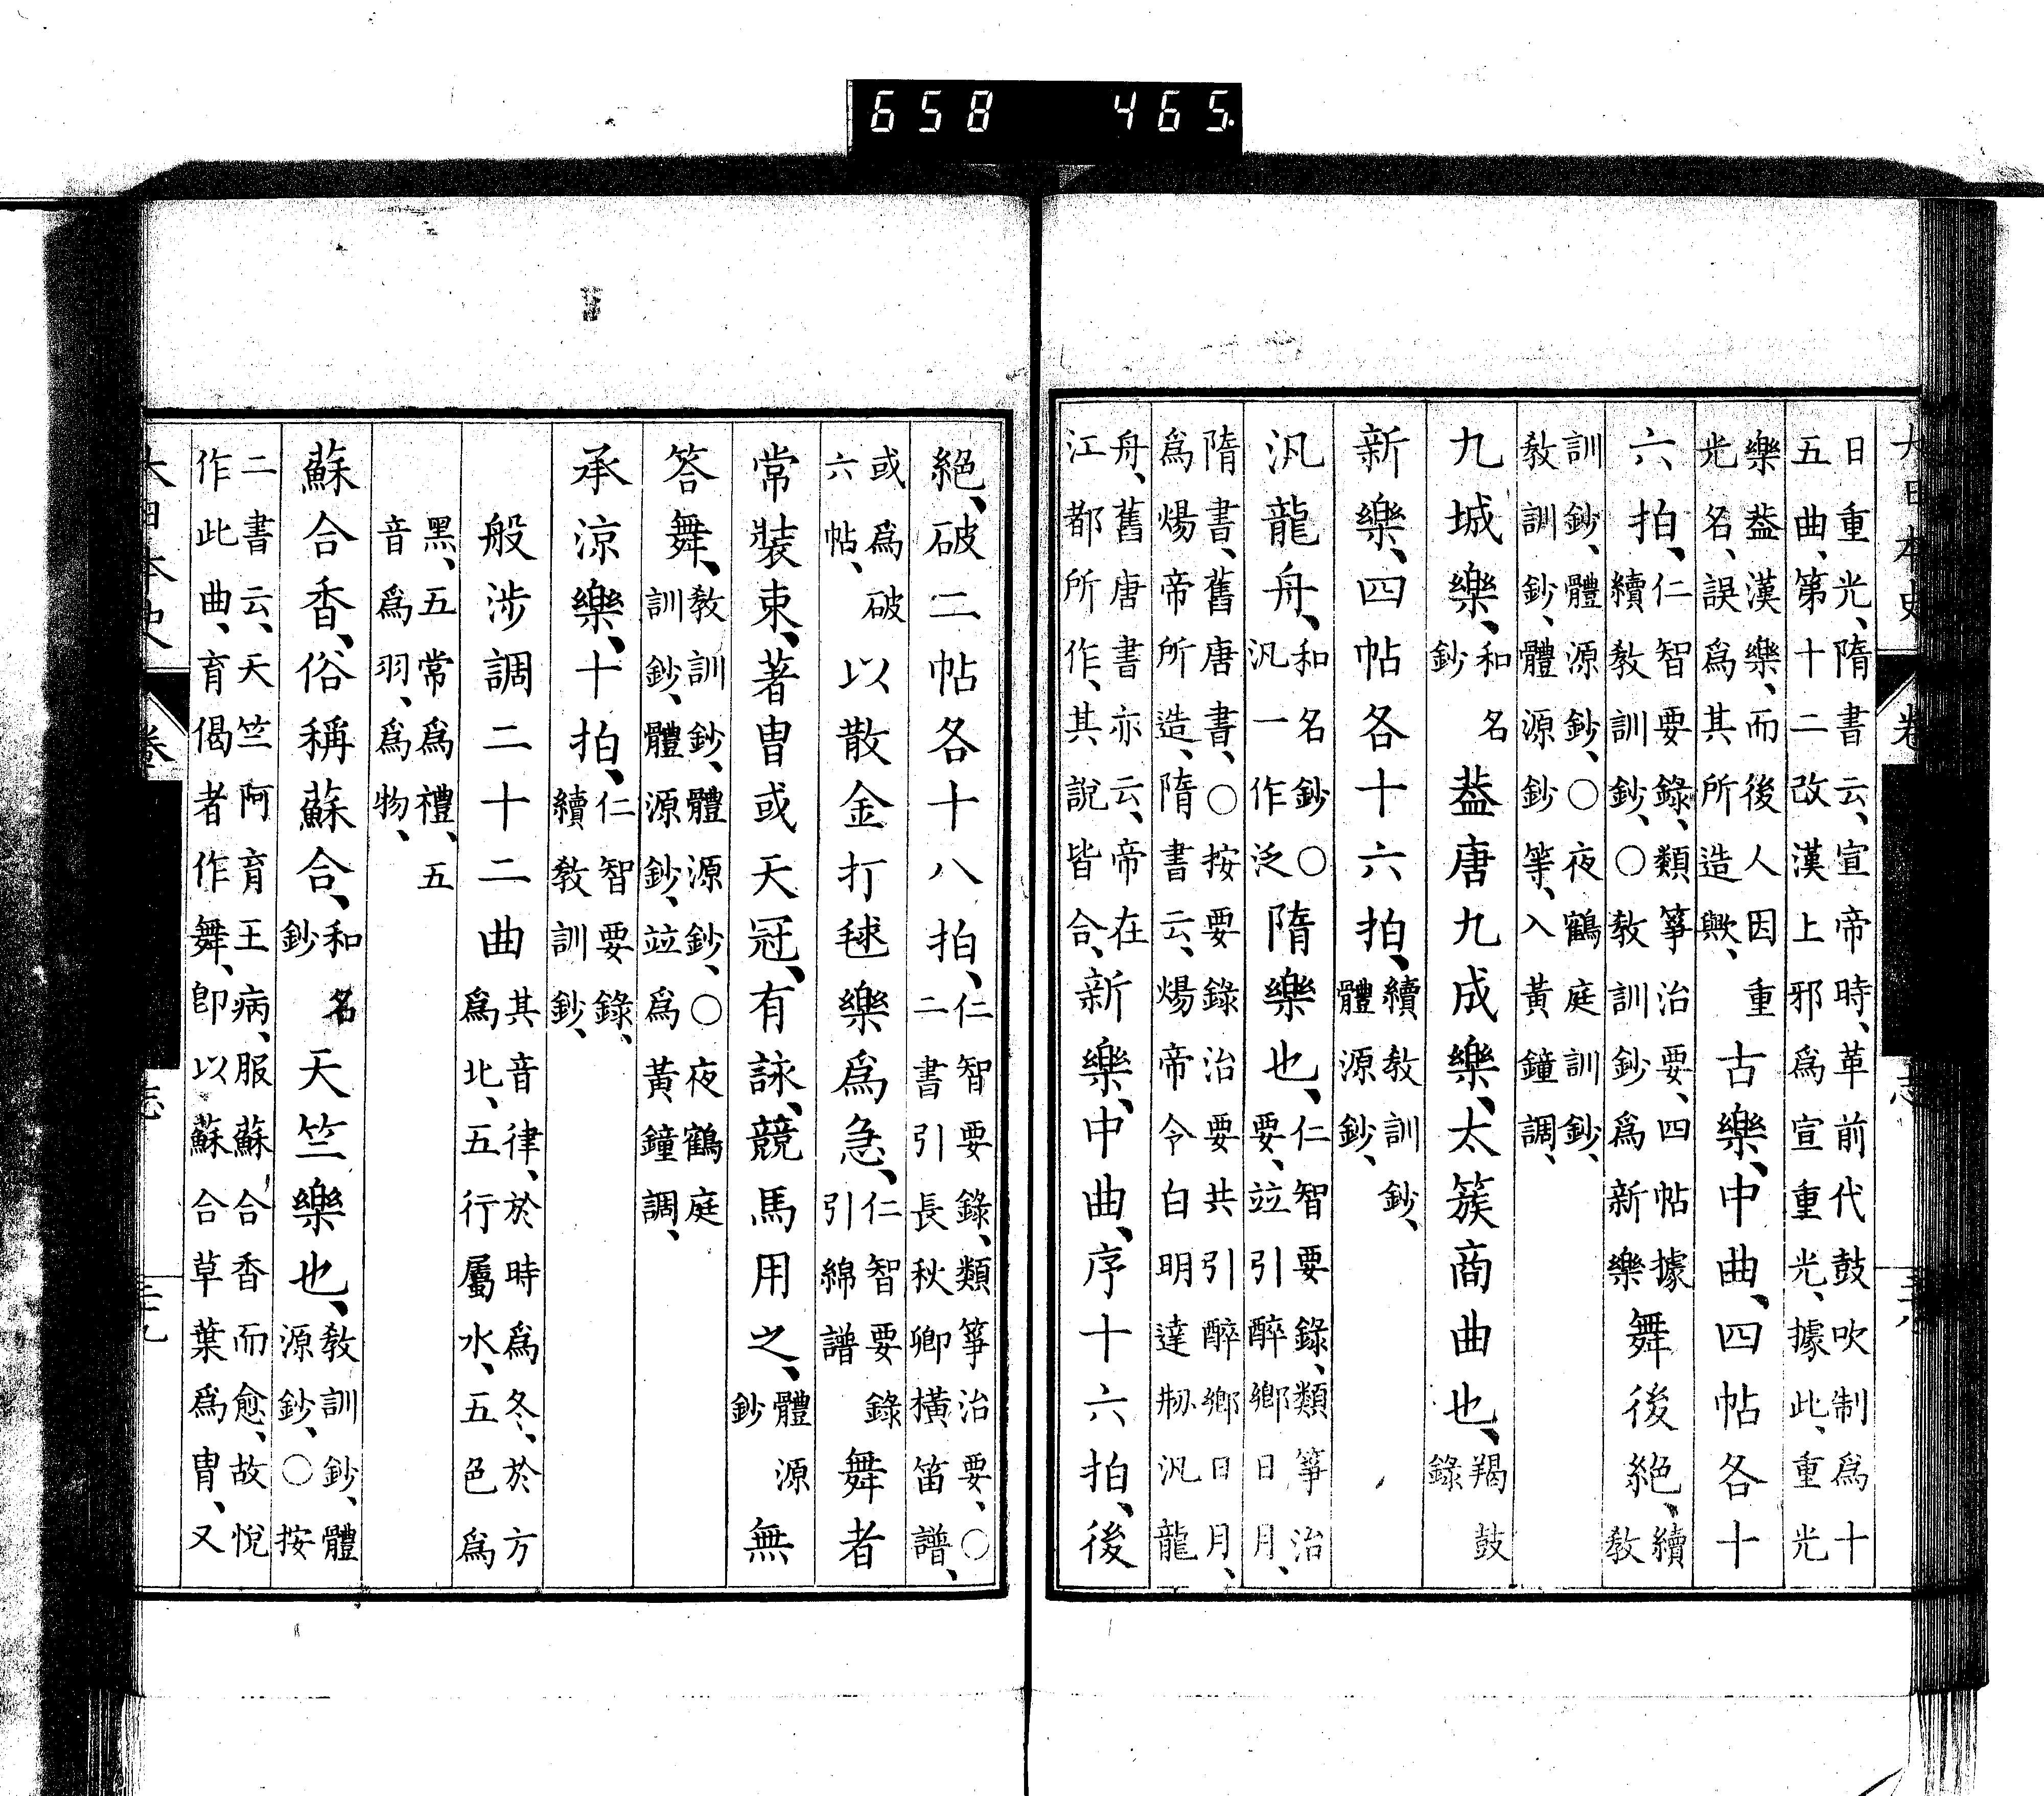 658 465
大日本史 卷 志
日重光、隋書云、宣帝時、革前代鼓吹制爲十
五曲、第十二改漢上邪爲宣重光、據此、重光
樂葢漢樂、而後人因重
光名、誤爲其所造歟、
古樂、中曲、四帖各十
六拍、
仁智要錄、類箏治要、四帖據
續教訓鈔、○教訓鈔爲新樂
舞後絕、
續
教
訓鈔、體源鈔、○夜鶴庭訓鈔、
教訓鈔、體源鈔等、入黃鐘調、
九城樂、
和名
鈔
葢唐九成樂、太簇商曲也、
羯鼓
錄
新樂、四帖各十六拍、
續教訓鈔、
體源鈔、
汎龍舟、
和名鈔○
汎一作泛
隋樂也、
仁智要錄、類箏治
要、竝引醉鄉日月、
隋書、舊唐書、○按要錄治要共引醉鄉日月、
爲煬帝所造、隋書云、煬帝令白明達刱汎龍
舟、舊唐書亦云、帝在
江都所作、其說皆合、
新樂、中曲、序十六拍、後
絕、破二帖各十八拍、
仁智要錄、類箏治要、○
二書引長秋卿橫笛譜、
或爲破
六帖、
以散金打毬樂爲急、
仁智要錄
引綿譜
舞者
常裝束、著冑或天冠、有詠、競馬用之、
體源
鈔
無
答舞、
教訓鈔、體源鈔、○夜鶴庭
訓鈔、體源鈔、竝爲黃鐘調、
承涼樂、十拍、
仁智要錄、
續教訓鈔、
般涉調二十二曲
其音律、於時爲冬、於方
爲北、五行屬水、五色爲
黑、五常爲禮、五
音爲羽、爲物、
蘇合香、俗稱蘇合、
和名
鈔
天竺樂也、
教訓鈔、體
源鈔、○按
二書云、天竺阿育王病、服蘇合香而愈、故悅
作此曲、育偈者作舞、卽以蘇合草葉爲冑、又
大日本史 卷 志 三十九